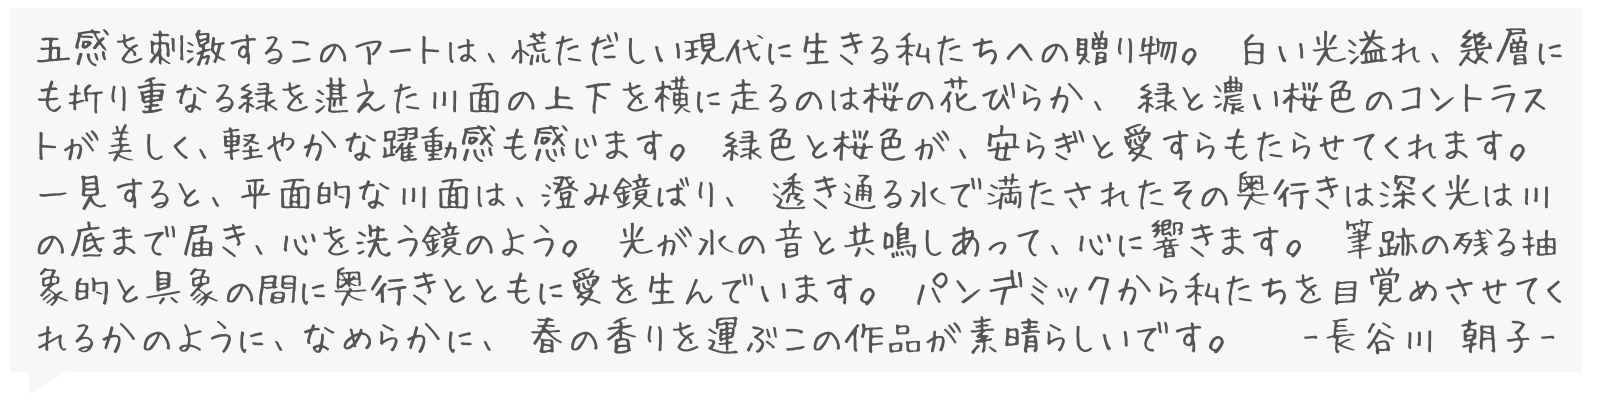 五感を刺激するこのアートは、慌ただしい現代に生きる私たちへの贈り物。 白い光溢れ、幾層に
も折り重なる緑を湛えた川面の上下を横に走るのは桜の花びらか、 緑と濃い桜色のコントラス
トが美しく、軽やかな躍動感も感じます。 緑色と桜色が、安らぎと愛すらもたらせてくれます。
一見すると、平面的な川面は、澄み鏡ばり、 透き通る水で満たされたその奥行きは深く光は川
の底まで届き、心を洗う鏡のよう。 光が水の音と共鳴しあって、心に響きます。 筆跡の残る抽
象的と具象の間に奥行きとともに愛を生んでいます。 パンデミックから私たちを目覚めさせてく
れるかのように、なめらかに、 春の香りを運ぶこの作品が素晴らしいです。 -長谷川 朝子-